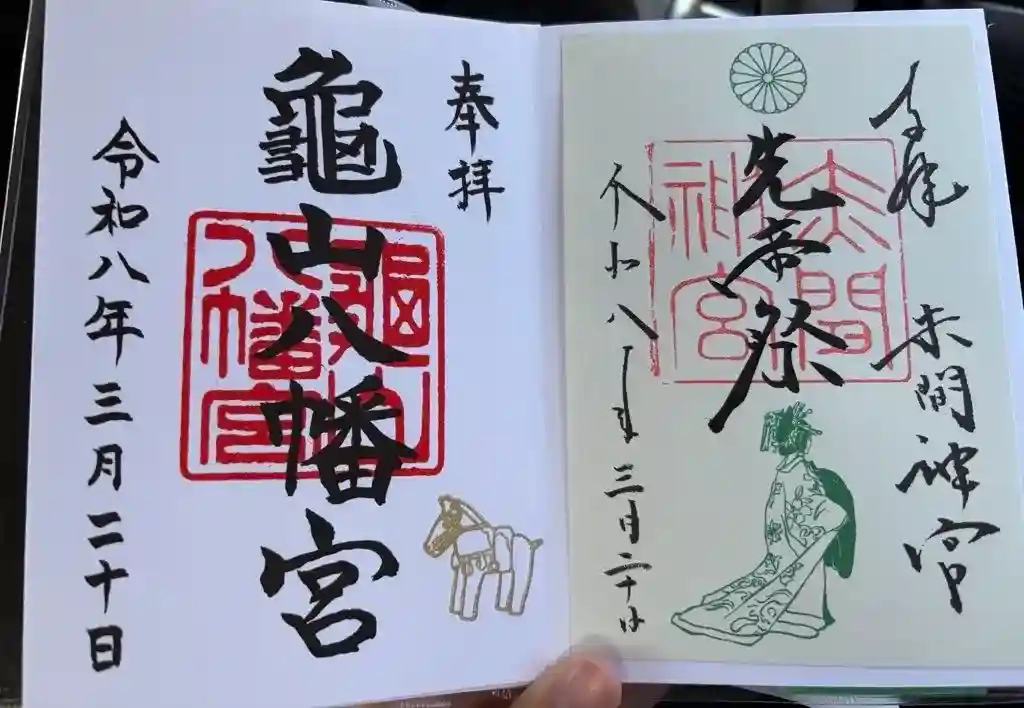 奉拝 赤間神宮
赤間
神宮
先帝祭
令和八年三月二十日
奉拝
龜山八幡宮
龜山
八幡宮
令和八年三月二十日